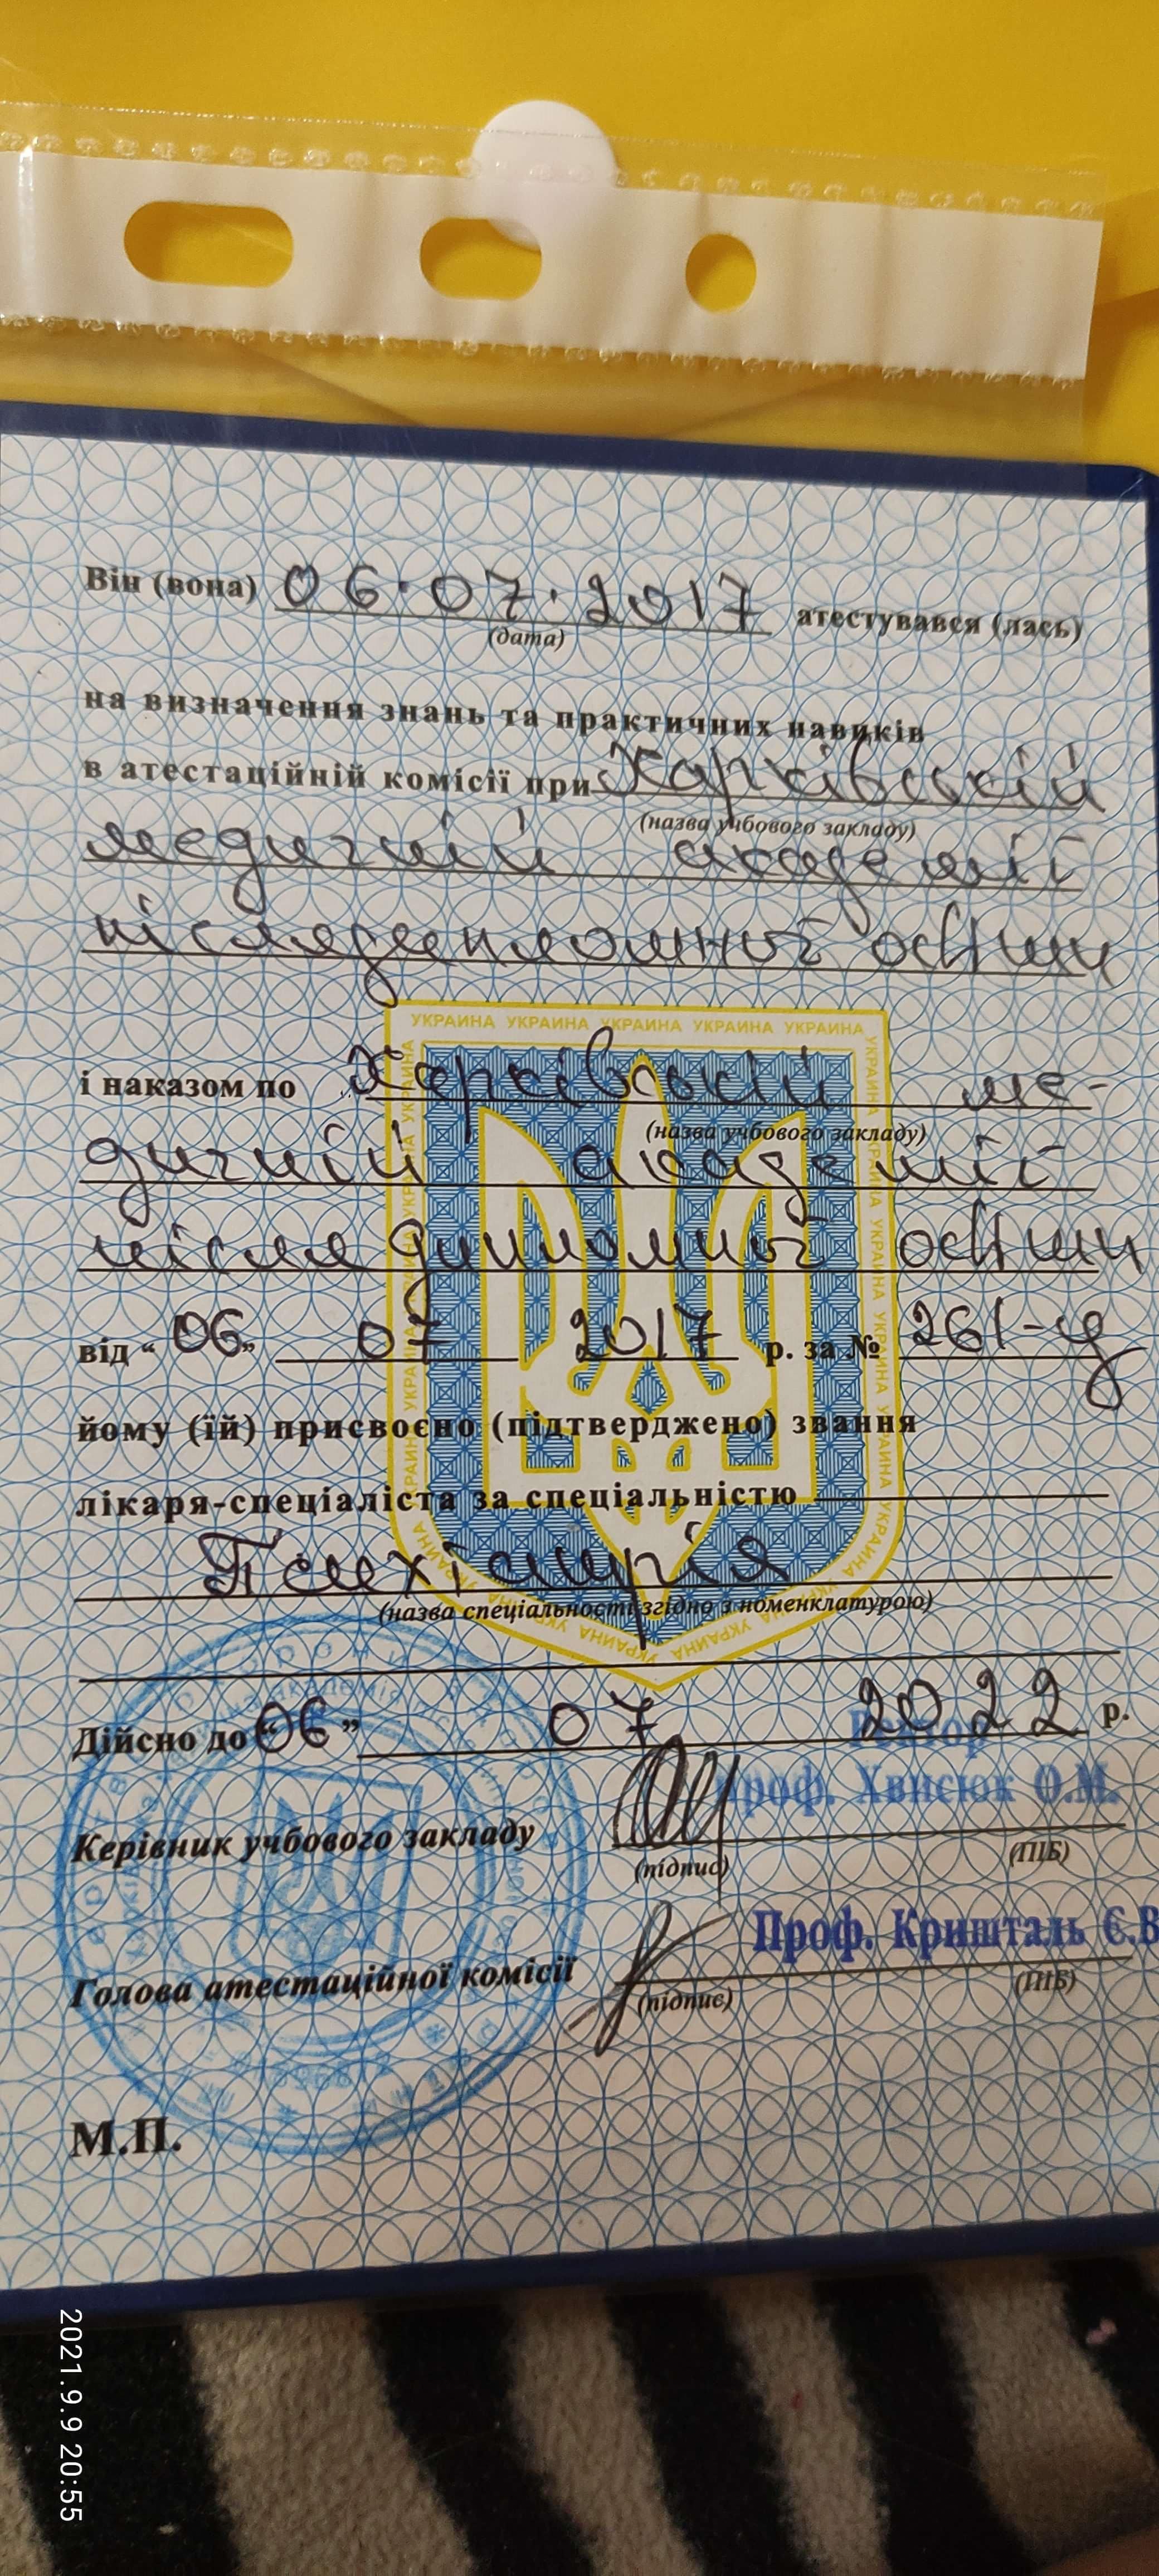 Він (вона) 06.07.2017 атестувався (лась)
(дата)
на визначення знань та практичних навиків
в атестаційній комісії при Харківській
(назва учбового закладу)
медичній академії
післядипломної освіти
УКРАИНА УКРАИНА УКРАИНА УКРАИНА УКРАИНА
і наказом по Харківській ме-
(назва учбового закладу)
дичній академії
післядипломної освіти
від “06” 07 2017 р. за № 261-
йому (їй) присвоєно (підтверджено) звання
лікаря-спеціаліста за спеціальністю
Психіатрія
(назва спеціальності згідно з номенклатурою)
Дійсно до “06” 07 2022 р.
Ректор
проф. Хвисюк О.М.
Керівник учбового закладу
(підпис) (ПІБ)
Проф. Кришталь Є.В
Голова атестаційної комісії
(підпис) (ПІБ)
М.П.
2021.9.9 20:55